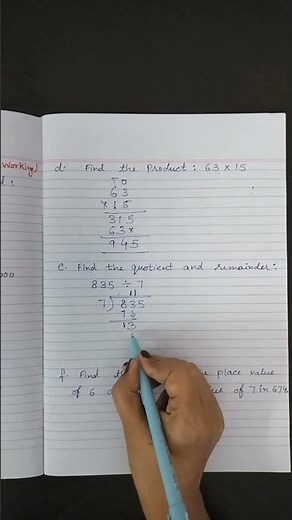 Working)
d. Find the Product : 63 × 15
T O
6 3
× 1 5
3 1 5
6 3 ×
9 4 5
e. Find the quotient and remainder:
835 ÷ 7
11
7) 835
7↓
13
f. Find the place value
of 6 of 7 in 674